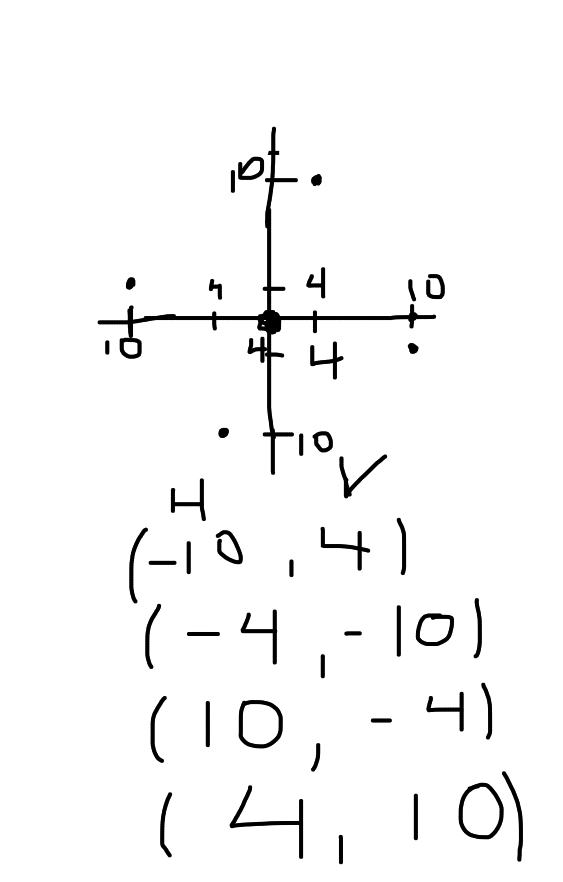 10
4 4 10
10 4 4
10
H V
(-10, 4)
(-4, -10)
(10, -4)
(4, 10)